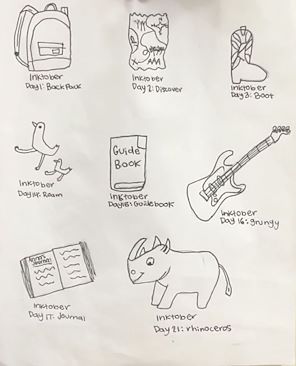 Inktober
Day 1: BackPack
Inktober
Day 2: Discover
Inktober
Day 3: Boot
Inktober
Day 14: Roam
GUIDE
BOOK
Inktober
Day 15: Guidebook
Inktober
Day 16: grungy
Inktober
Day 17: Journal
Inktober
Day 21: rhinoceros